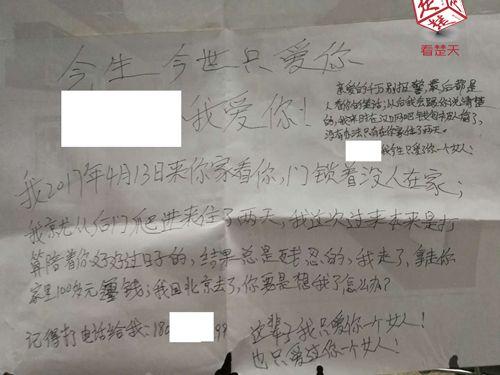 看楚天
今生今世只爱你
我爱你！
亲爱的千万别报警最后都是
人看你的笑话，以后我会跟你说清楚
的，我来时在汉口网吧钱包被人偷了，
没有办法只有在你家住了两天。
我今生只爱了你一个女人！
我2017年4月13日来你家看你，门锁着没人在家，
我就从后门爬进来住了两天，我这次过来本来是打
算陪着你好好过日子的，结果总是残忍的，我走了，拿走你
家里100多元零钱，我回北京去了，你要是想我了怎么办？
记得打电话给我：18
99
这辈子我只爱你一个女人！
也只爱过你一个女人！